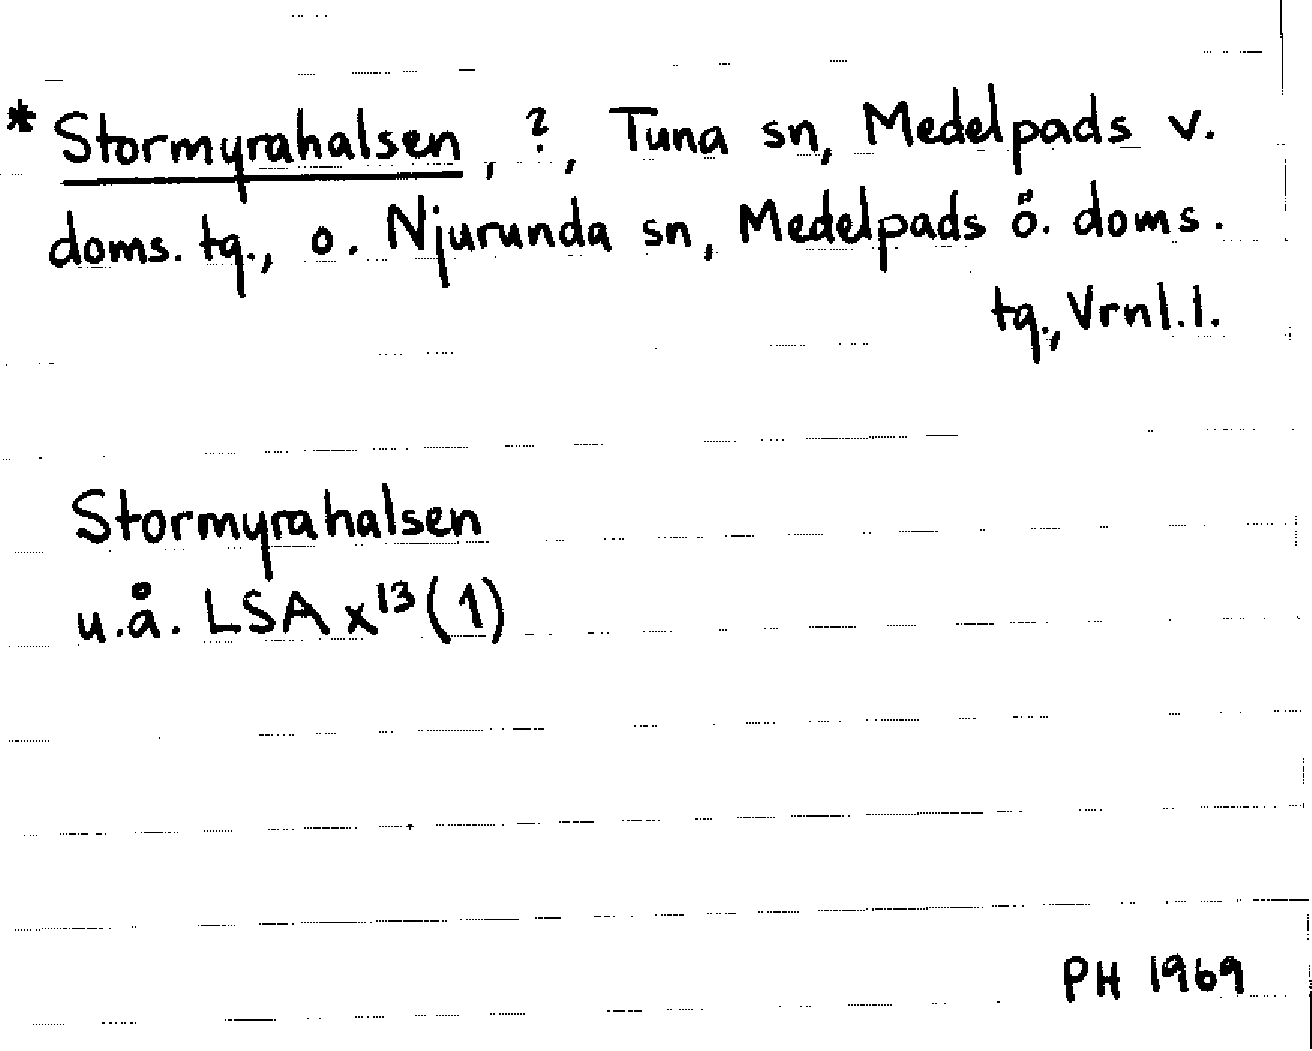 * Stormyrahalsen, ?, Tuna sn, Medelpads v.
doms. tg., o. Njurunda sn, Medelpads ö. doms.
tg., Vrnl.l.
Stormyrahalsen
u.å. LSA x¹³(1)
PH 1969